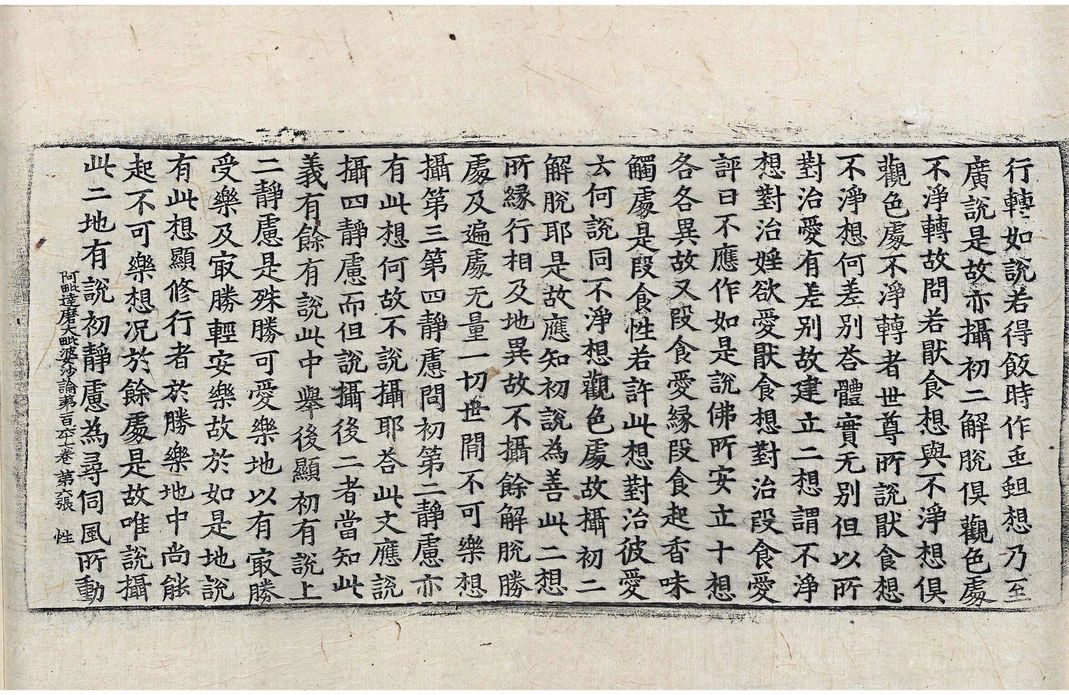 行轉如說若得飯時作虫蛆想乃至
廣說是故亦攝初二解脫俱觀色處
不淨轉故問若猒食想與不淨想俱
觀色處不淨轉者世尊所說猒食想
不淨想何差別荅體實无別但以所
對治愛有差別故建立二想謂不淨
想對治婬欲愛猒食想對治段食愛
評曰不應作如是說佛所安立十想
各各異故又段食愛緣段食起香味
觸處是段食性若許此想對治彼愛
云何說同不淨想觀色處故攝初二
解脫耶是故應知初說為善此二想
所緣行相及地異故不攝餘解脫勝
處及遍處无量一切世間不可樂想
攝第三第四靜慮問初第二靜慮亦
有此想何故不說攝耶荅此文應說
攝四靜慮而但說攝後二者當知此
義有餘有說此中舉後顯初有說上
二靜慮是殊勝可愛樂地以有㝡勝
受樂及㝡勝輕安樂故於如是地說
有此想顯修行者於勝樂地中尚能
起不可樂想况於餘處是故唯說攝
阿毗達磨大毗婆沙論第百卷 第張 性
此二地有說初靜慮為尋伺風所動